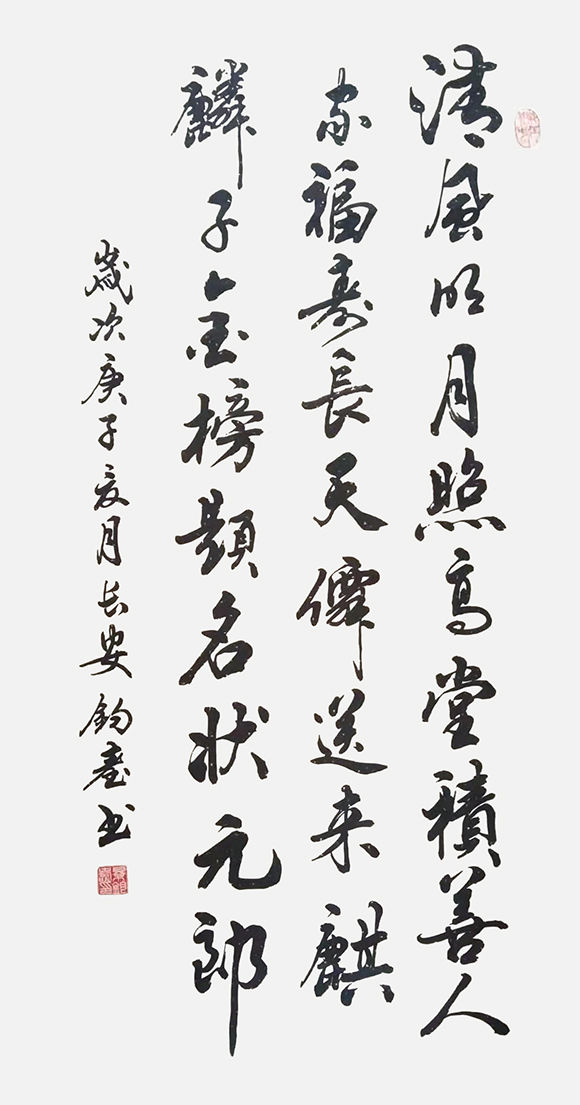 清風明月照高堂積善人
家福壽長天僊送来麒
麟子金榜題名状元郎
歲次庚子夏月长安鈞臺书